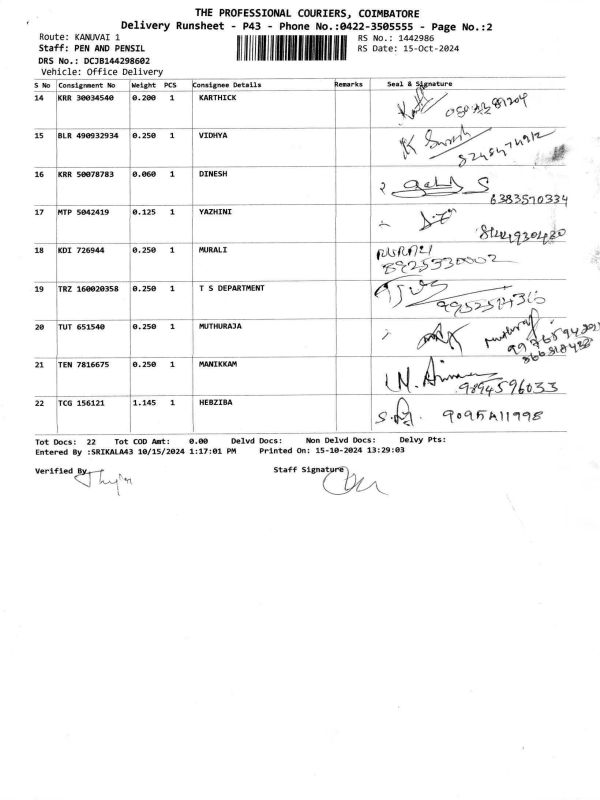 THE PROFESSIONAL COURIERS, COIMBATORE
Delivery Runsheet - P43 - Phone No.:0422-3505555 - Page No.:2
Route: KANUVAI 1 RS No.: 1442986
Staff: PEN AND PENSIL RS Date: 15-Oct-2024
DRS No.: DCJB144298602
Vehicle: Office Delivery
S No Consignment No Weight PCS Consignee Details Remarks Seal & Signature
14 KRR 30034540 0.200 1 KARTHICK
15 BLR 490932934 0.250 1 VIDHYA
16 KRR 50078783 0.060 1 DINESH
6383570334
17 MTP 5042419 0.125 1 YAZHINI
18 KDI 726944 0.250 1 MURALI MURALI
8925330002
19 TRZ 160020358 0.250 1 T S DEPARTMENT
20 TUT 651540 0.250 1 MUTHURAJA
21 TEN 7816675 0.250 1 MANIKKAM
9894596033
22 TCG 156121 1.145 1 HEBZIBA
Tot Docs: 22 Tot COD Amt: 0.00 Delvd Docs: Non Delvd Docs: Delvy Pts:
Entered By :SRIKALA43 10/15/2024 1:17:01 PM Printed On: 15-10-2024 13:29:03
Verified By Staff Signature